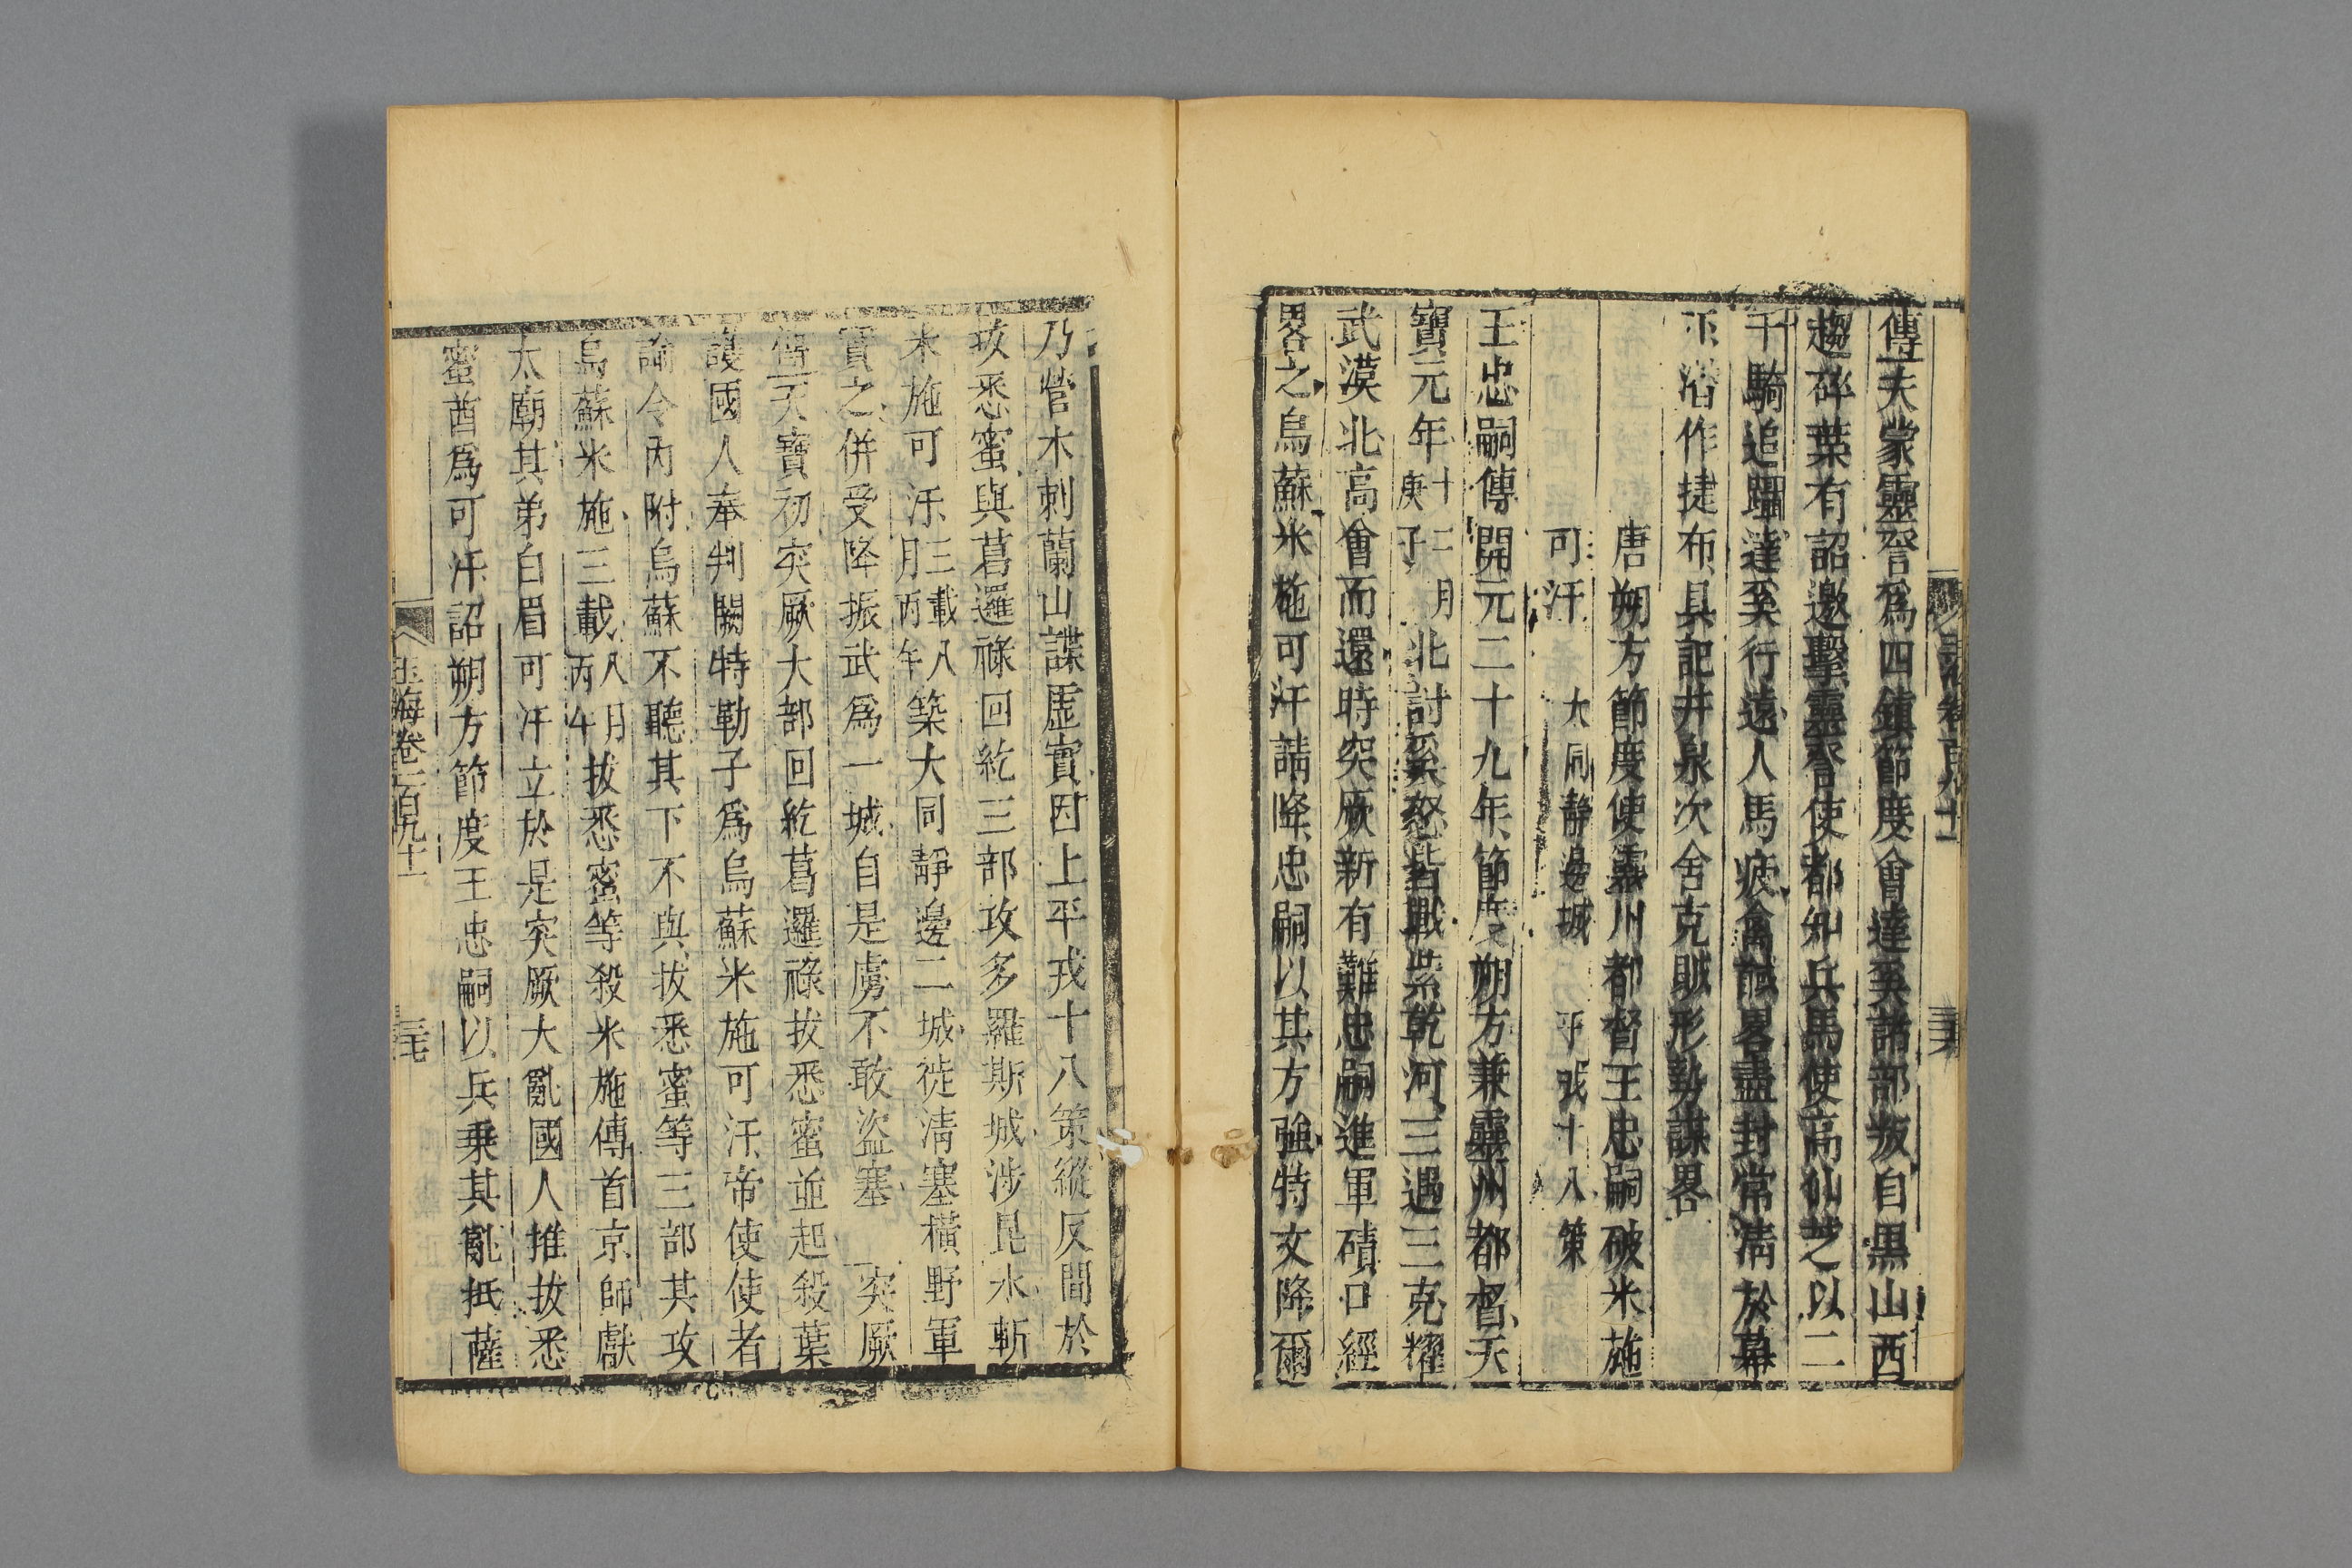 傳夫蒙靈詧爲四鎮節度會達奚諸部叛自黑山西
趨碎葉有詔邀擊靈詧使都知兵馬使高仙芝以二
千騎追躡達奚行遠人馬疲禽馘畧盡封常清於幕
下潛作捷布具記井泉次舍克賊形勢謀畧
唐朔方節度使靈州都督王忠嗣破米施
可汗 大同靜邊城 平戎十八策
王忠嗣傳開元二十九年節度朔方兼靈州都督天
寶元年十二月庚子北討奚怒皆戰桑乾河三遇三克耀
武漠北高會而還時突厥新有難忠嗣進軍磧口經
畧之烏蘇米施可汗請降忠嗣以其方強特文降爾
乃營木刺蘭山諜虛實因上平戎十八策縱反間於
拔悉蜜與葛邏祿回紇三部攻多羅斯城涉昆水斬
米施可汗三載八月丙午築大同靜邊二城徙清塞橫野軍
實之併受降振武爲一城自是虜不敢盜塞 突厥
傳天寶初突厥大部回紇葛邏祿拔悉蜜並起殺葉
護國人奉判闕特勒子爲烏蘇米施可汗帝使使者
諭令內附烏蘇不聽其下不與拔悉蜜等三部共攻
烏蘇米施三載八月丙午拔悉蜜等殺米施傳首京師獻
太廟其弟白眉可汗立於是突厥大亂國人推拔悉
蜜酋爲可汗詔朔方節度王忠嗣以兵乗其亂抵薩
玉海卷一百九十一
三十七